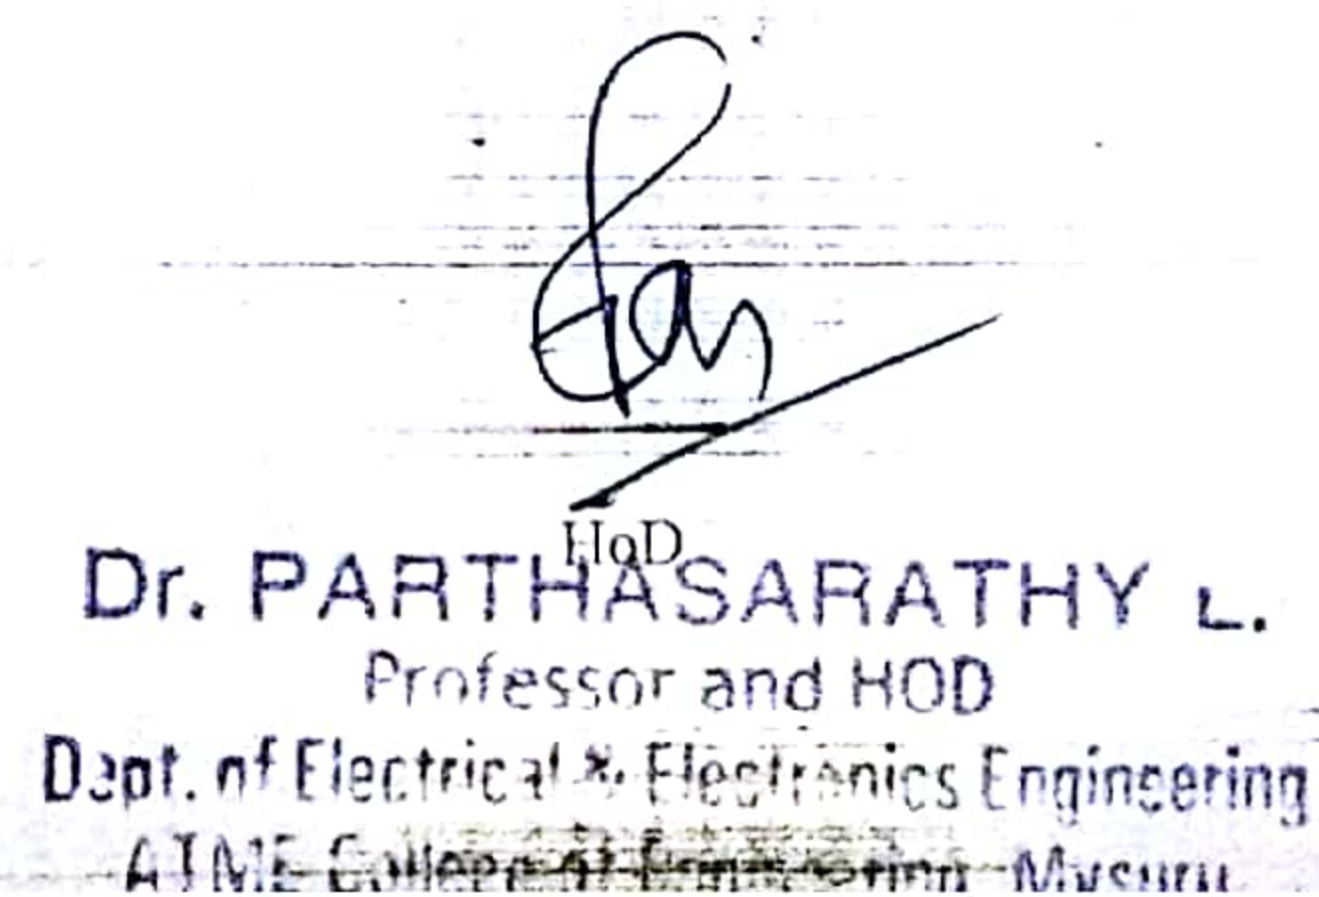 HoD
Dr. PARTHASARATHY L.
Professor and HOD
Dept. of Electrical & Electronics Engineering
ATME College of Engineering Mysuru